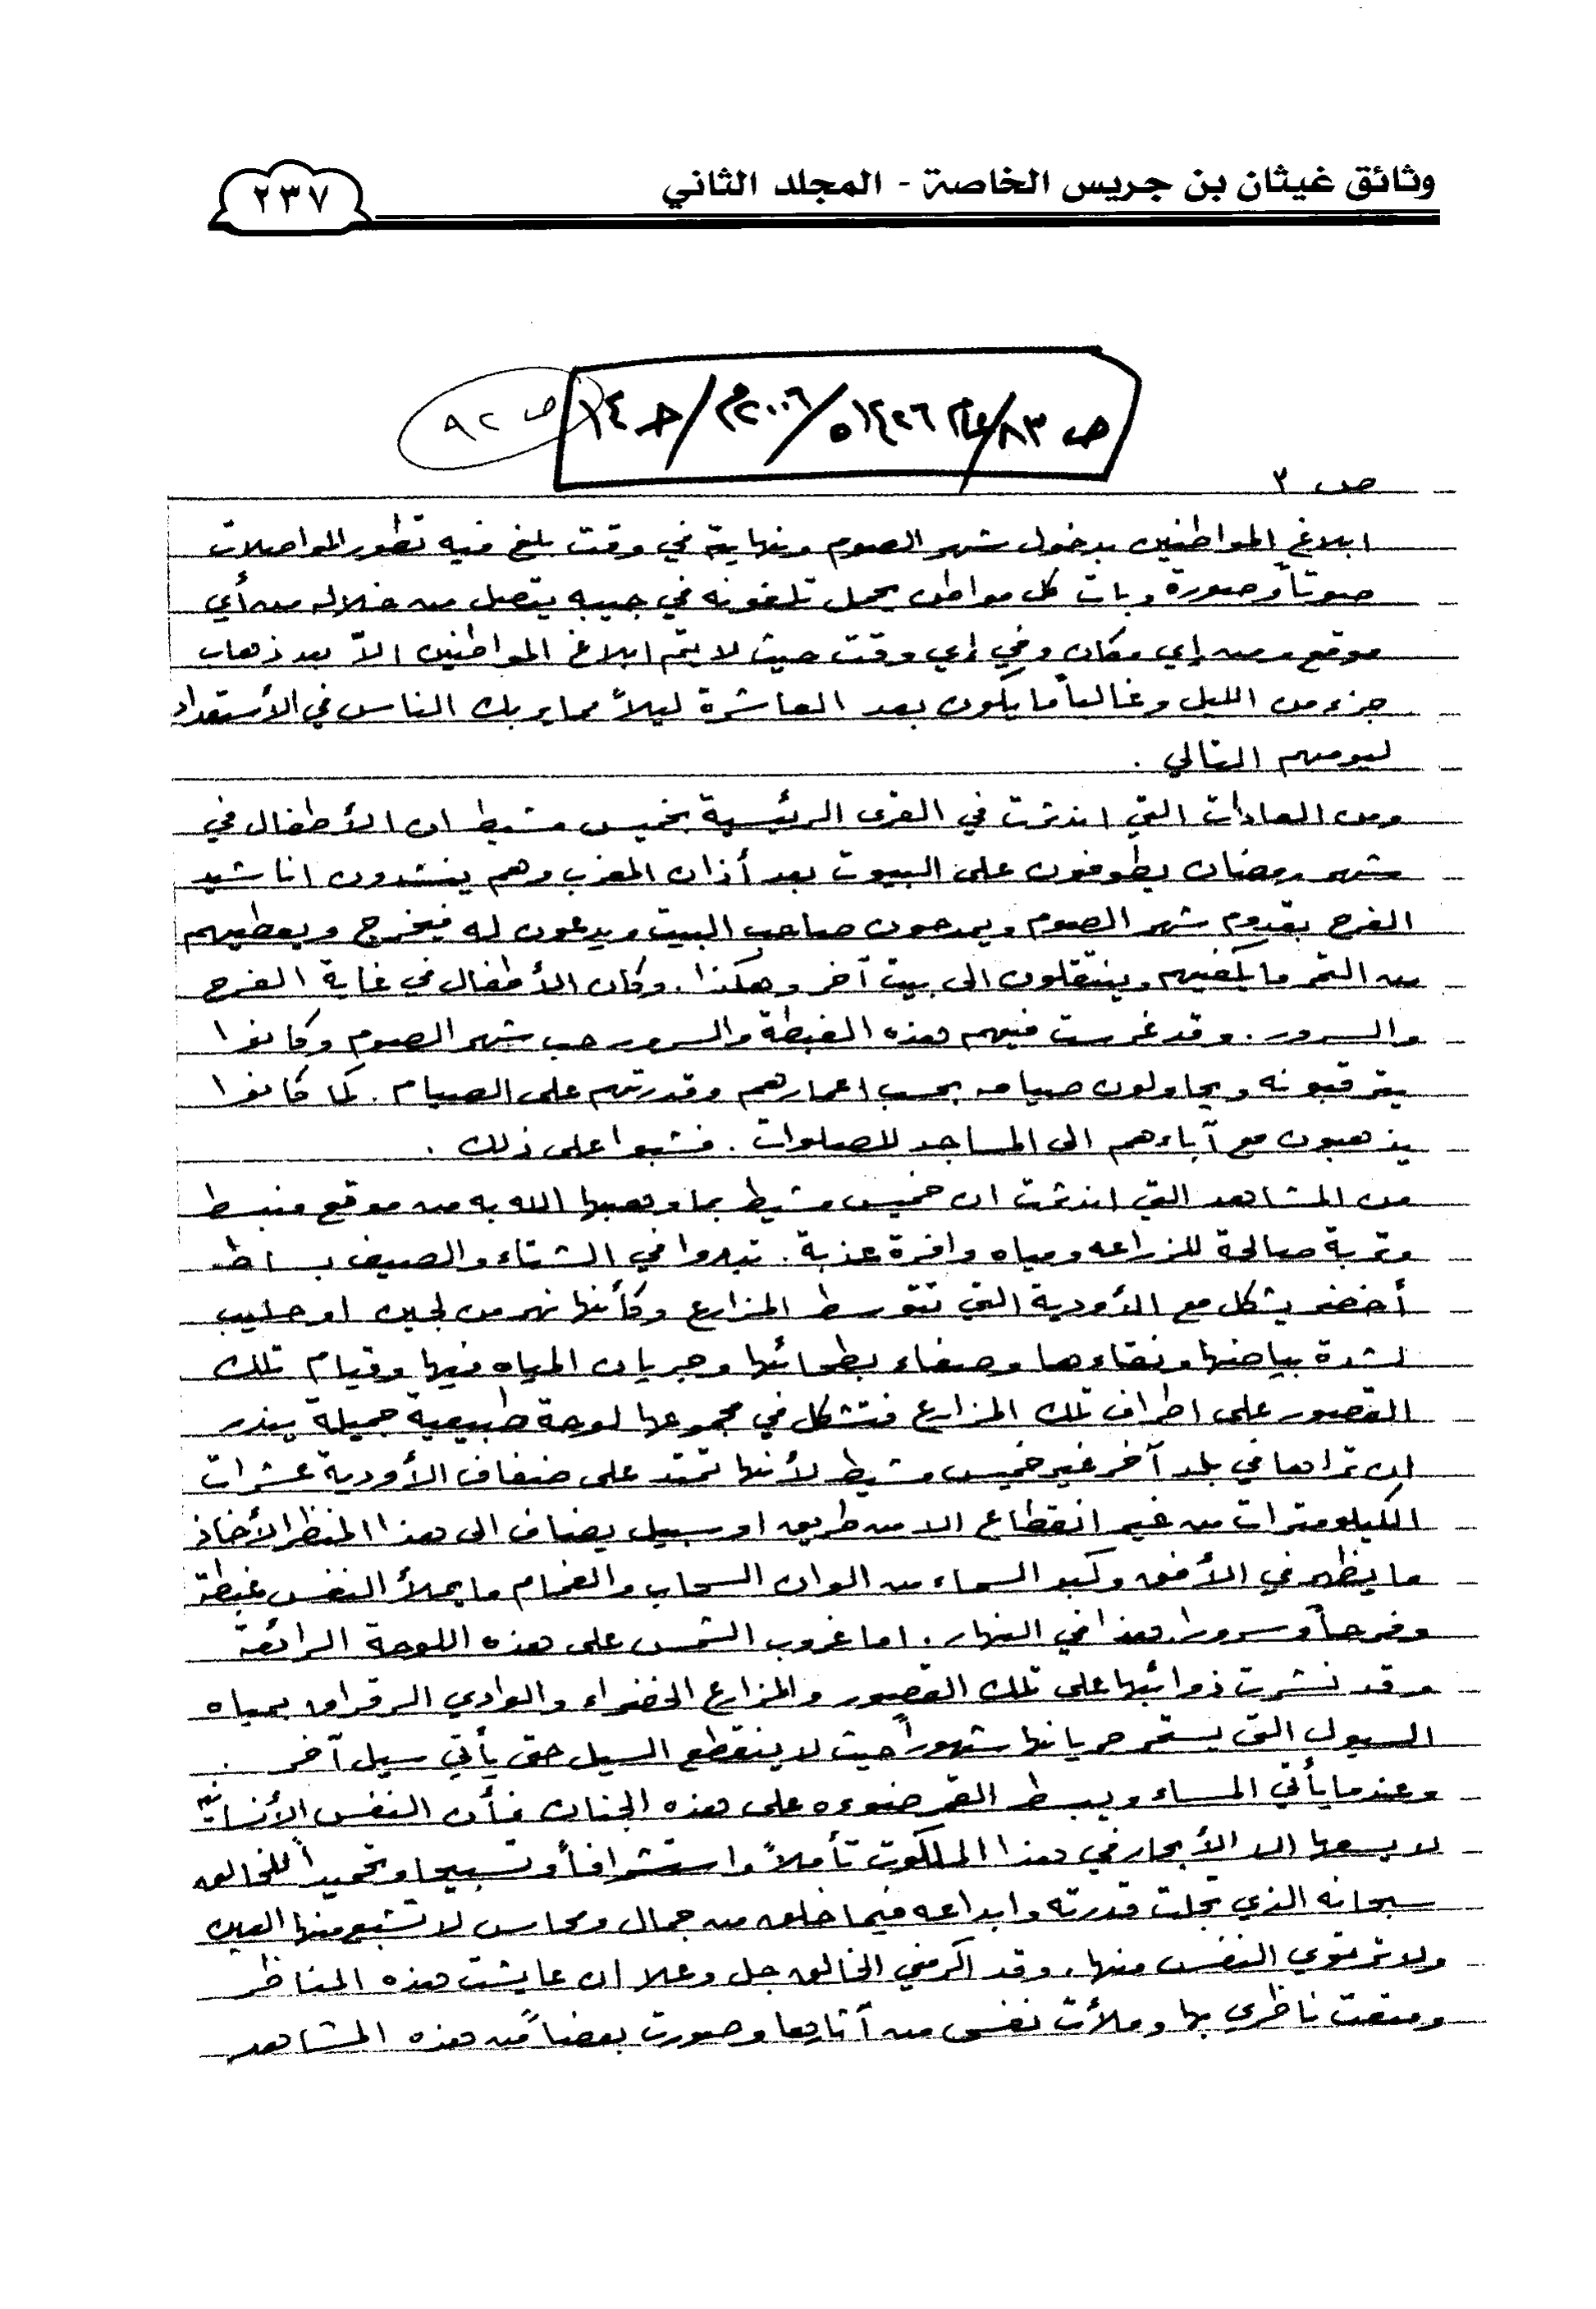 وثائق غيثان بن جريس الخاصة - المجلد الثاني
٢٣٧
ص ٨٣ / ١٤٢٦ه / ٢٠٠٦م / ح١٤
ص ٩٢
ص ٣
ابلاغ المواطنين بدخول شهر الصوم ونهايته في وقت بلغ فيه تطور المواصلات
صوتاً وصورة وبات كل مواطن يحمل تلفونه في جيبه يتصل من خلاله من أي
موقع ومن إي مكان وفي إي وقت حيث لا يتم ابلاغ المواطنين الاّ بعد ذهاب
جزء من الليل وغالباً ما يكون بعد العاشرة ليلاً مما يربك الناس في الأستعداد
ليومهم التالي .
ومن العادات التي اندثرت في القرى الرئيسية بخميس مشيط ان الأطفال في
شهر رمضان يطوفون على البيوت بعد أذان المغرب وهم ينشدون اناشيد
الفرح بقدوم شهر الصوم ويمدحون صاحب البيت ويدعون له فيخرج ويعطيهم
من التمر ما يكفيهم وينتقلون الى بيت آخر وهكذا . وكان الأطفال في غاية الفرح
والسرور . وقد غرست فيهم هذه الغبطة والسرور حب شهر الصوم وكانوا
يترقبونه ويحاولون صيامه بحسب اعمارهم وقدرتهم على الصيام . كما كانوا
يذهبون مع آباءهم الى المساجد للصلوات . فشبوا على ذلك .
من المشاهد التي اندثرت ان خميس مشيط بما وهبها الله به من موقع منبسط
وتربة صالحة للزراعه ومياه وافرة عذبة . تبدوا في الشتاء والصيف بساط
أخضر يشكل مع الأودية التي تتوسط المزارع وكأنها نهر من لجين او حليب
لشدة بياضها ونقاءها وصفاء بطحائها وجريان المياه فيها وقيام تلك
القصور على اطراف تلك المزارع فتشكل في مجموعها لوحة طبيعية جميلة يندر
ان تراها في بلد آخر غير خميس مشيط لأنها تمتد على ضفاف الأودية عشرات
الكيلومترات من غير انقطاع الا من طريق او سبيل يضاف الى هذا المنظر الأخاذ
ما يظهر في الأفق وكبد السماء من الوان السحاب والغمام ما يملأ النفس غبطة
وفرحاً وسرورا. هذا في النهار . اما غروب الشمس على هذه اللوحة الرائعة
وقد نشرت ذوائبها على تلك القصور والمزارع الخضراء والوادي الرقراق بمياه
السيول التي يستمر جريانها شهوراً حيث لا ينقطع السيل حتى يأتي سيل آخر .
وعندما يأتي المساء ويبسط القمر ضوءه على هذه الجنان فأن النفس الأنسانية
لا يسعها الا الأبحار في هذا الملكوت تأملاً واستشرافاً وتسبيحا وتحميداً للخالق
سبحانه الذي تجلت قدرته وابداعه فيما خلق من جمال ومحاسن لا تشبع منها العين
ولا ترتوي النفس منها . وقد اكرمني الخالق جل وعلا ان عايشت هذه المناظر
ومتعت ناظري بها وملأت نفسي من آثارها وصورت بعضاً من هذه المشاهد